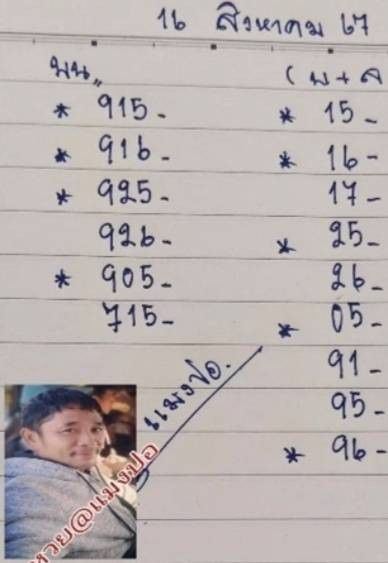 16 สิงหาคม 67
บน,,
* 915-
* 916-
* 925-
926-
* 905-
715-
( บ+ล
* 15-
* 16-
17-
* 25-
26-
* 05-
91-
95-
* 96-
แมงปอ.
หวย@แมงปอ